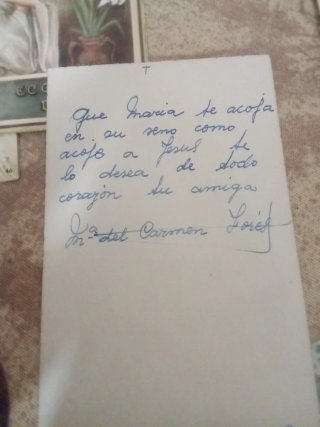 Que Maria te acoja
en su seno como
acojo a Jesus te
lo desea de todo
corazón tu amiga
Mª del Carmen